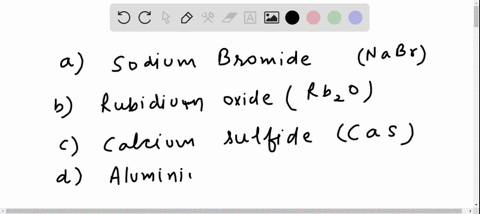 a) Sodium Bromide (NaBr)
b) Rubidium oxide (Rb₂O)
c) Calcium sulfide (CaS)
d) Alumini